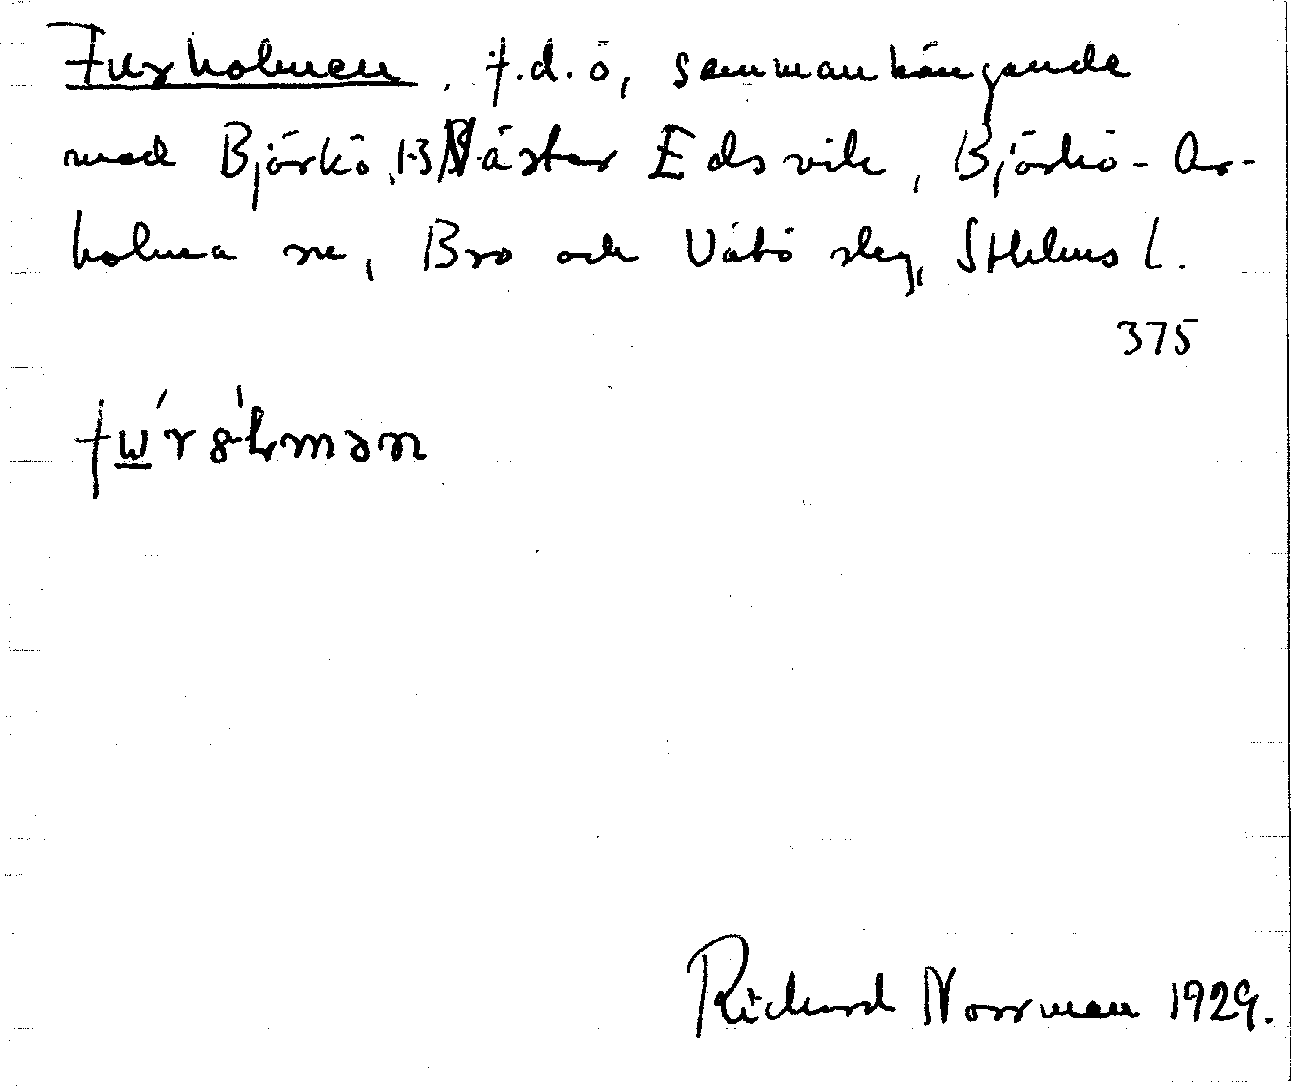 Furholmen, f.d. ö, sammanhängande
med Björkö, öster Edsvik, Björkö-Ar-
holma sn, Bro och Vätö skg, Sthlms l.
375
Richard Norrman 1929.